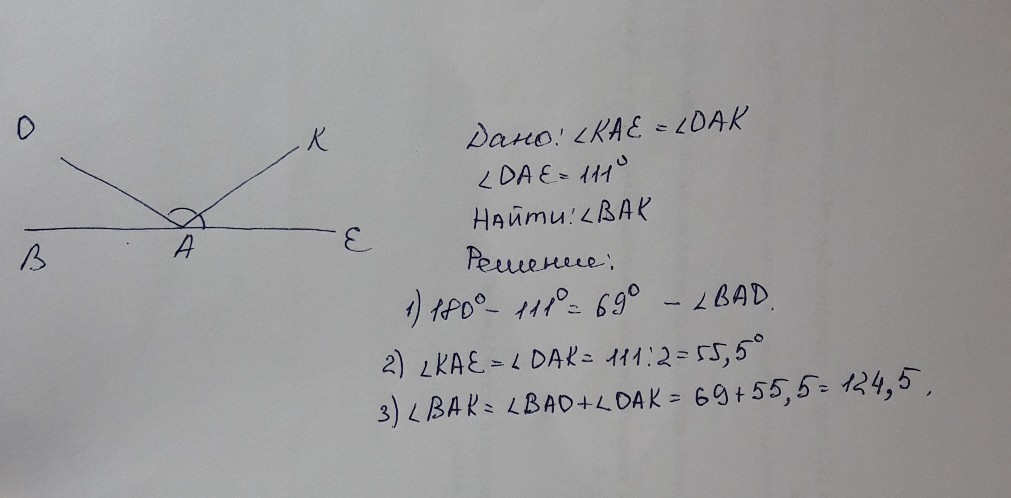 D
K
B
A
E
Дано: ∠KAE = ∠DAK
∠DAE = 111°
Найти: ∠BAK
Решение:
1) 180° - 111° = 69° - ∠BAD.
2) ∠KAE = ∠DAK = 111:2 = 55,5°
3) ∠BAK = ∠BAD + ∠DAK = 69 + 55,5 = 124,5.